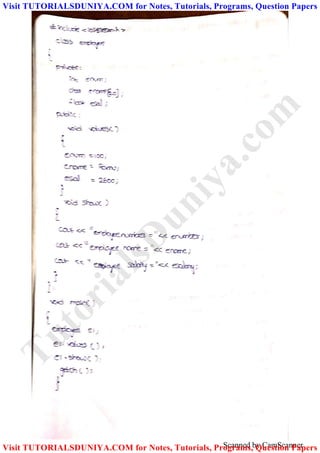 Visit TUTORIALSDUNIYA.COM for Notes, Tutorials, Programs, Question Papers
# include <iostream.h>
class employee
{
private:
int enum;
char ename[20];
float esal;
public:
void values()
{
enum =100;
ename =
esal = 2600;
}
void show()
{
cout << "employeenumber =" << enumber;
cout << "employee name = " << ename;
cout << "employee salary =" << esalary;
}
};
void main()
{
employee e1;
e1. values ();
e1. show();
getch();
}
TutorialsDuniya.com
Scanned by CamScanner
Visit TUTORIALSDUNIYA.COM for Notes, Tutorials, Programs, Question Papers